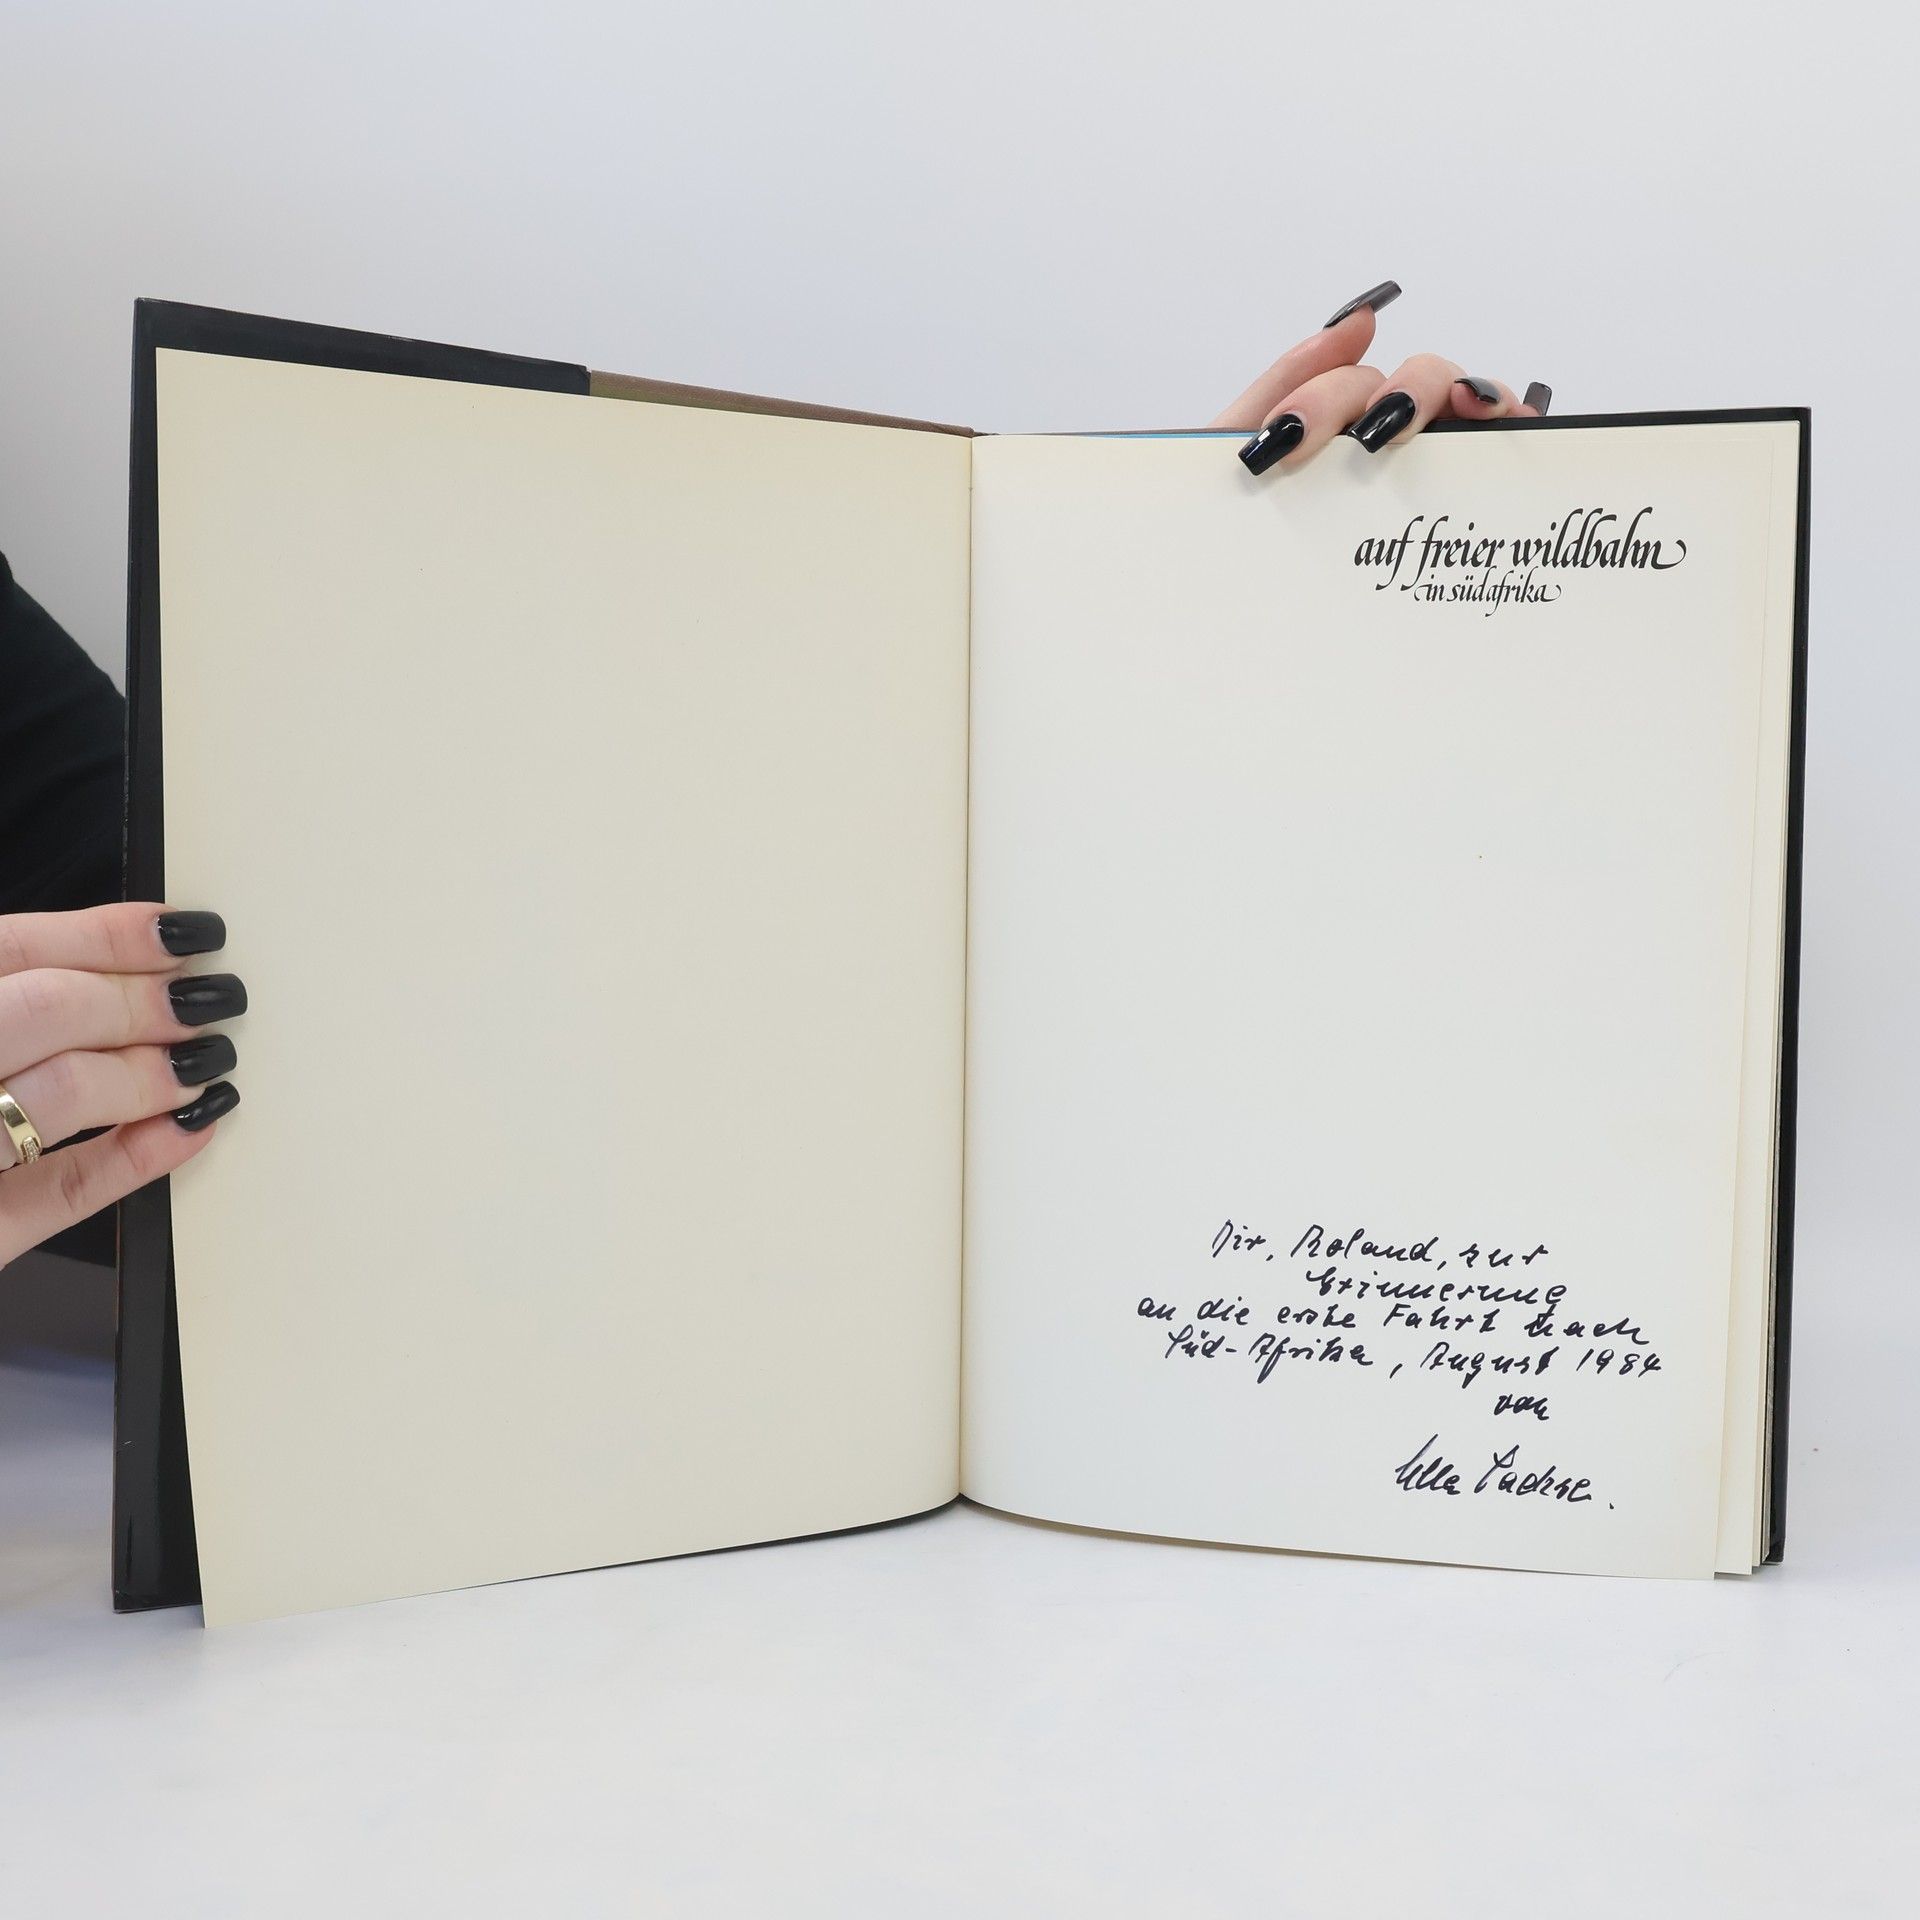 auf freier wildbahn
in südafrika
Dir, Roland, zur
Erinnerung
an die erste Fahrt nach
Süd-Afrika, August 1984
von
Ulla Sachse.